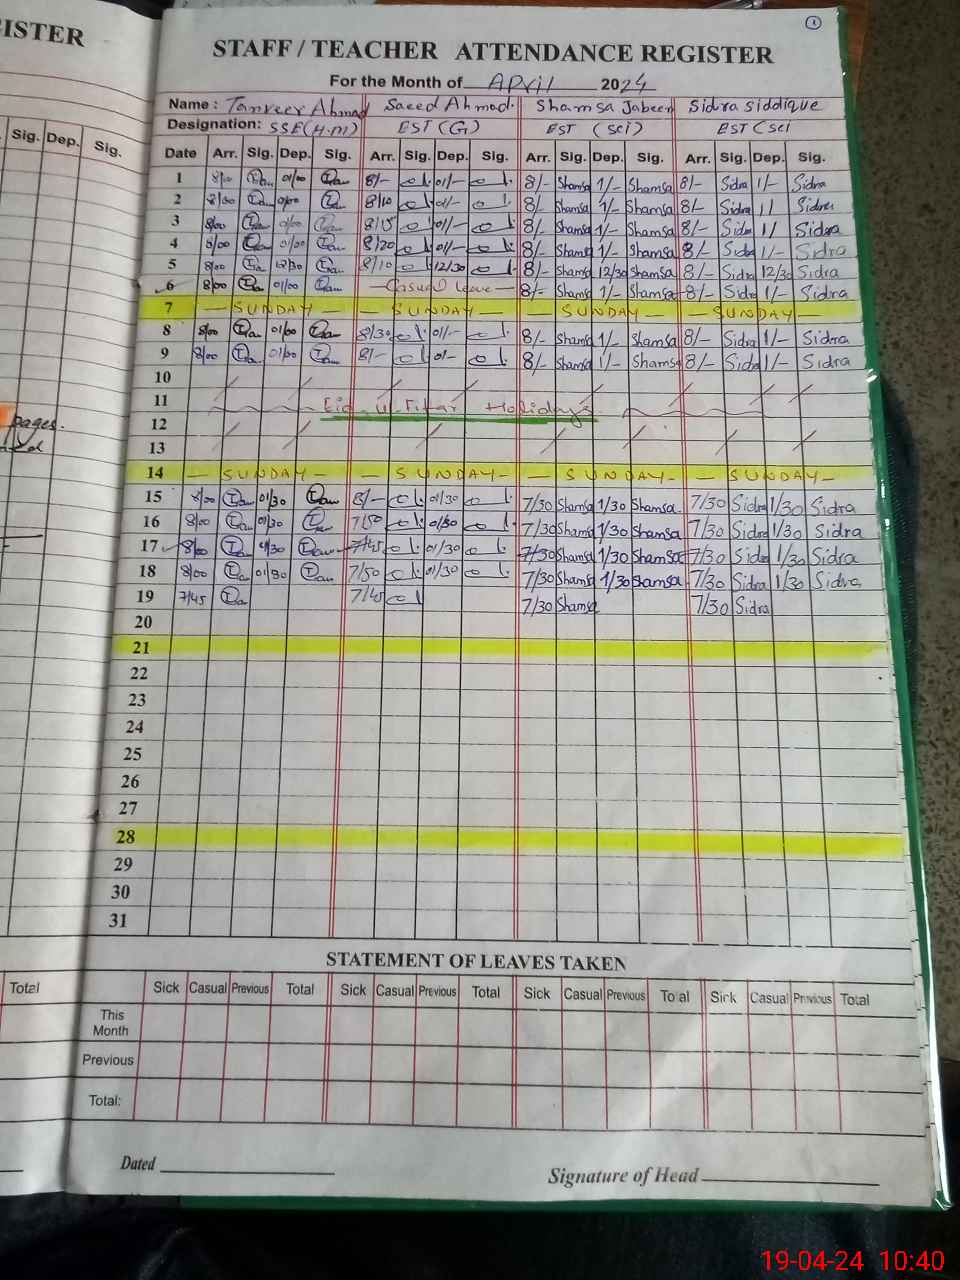 ISTER
①
STAFF / TEACHER ATTENDANCE REGISTER
For the Month of April 2024
Name : Tanveer Ahmad Saeed Ahmad. Shamsa Jabeen Sidra Siddique
Designation: SSE(H.M) EST (G) EST (Sci) EST (Sci
Sig. Dep. Sig.
Date Arr. Sig. Dep. Sig. Arr. Sig. Dep. Sig. Arr. Sig. Dep. Sig. Arr. Sig. Dep. Sig.
1 8/00 01/00 8/- 01/- 8/- Shamsa 1/- Shamsa 8/- Sidra 1/- Sidra
2 8/00 01/00 8/10 01/- 8/- Shamsa 1/- Shamsa 8/- Sidra 1/ Sidra
3 8/00 01/00 8/15 01/- 8/- Shamsa 1/- Shamsa 8/- Sidra 1/ Sidra
4 8/00 01/00 8/20 01/- 8/- Shamsa 1/- Shamsa 8/- Sidra 1/- Sidra
5 8/00 12/30 8/10 12/30 8/- Shamsa 12/30 Shamsa 8/- Sidra 12/30 Sidra
6 8/00 01/00 — Casual leave — 8/- Shamsa 1/- Shamsa 8/- Sidra 1/- Sidra
7 — SUNDAY — — SUNDAY — — SUNDAY — — SUNDAY —
8 8/00 01/00 8/30 01/- 8/- Shamsa 1/- Shamsa 8/- Sidra 1/- Sidra
9 8/00 01/00 8/- 01/- 8/- Shamsa 1/- Shamsa 8/- Sidra 1/- Sidra
10
11 Eid-u-Fitar Holidays
12
13
14 — SUNDAY — — SUNDAY — — SUNDAY — — SUNDAY —
15 8/00 01/30 8/- 01/30 7/30 Shamsa 1/30 Shamsa 7/30 Sidra 1/30 Sidra
16 8/00 01/30 7/50 01/30 7/30 Shamsa 1/30 Shamsa 7/30 Sidra 1/30 Sidra
17 8/00 01/30 7/45 01/30 7/30 Shamsa 1/30 Shamsa 7/30 Sidra 1/30 Sidra
18 8/00 01/30 7/50 01/30 7/30 Shamsa 1/30 Shamsa 7/30 Sidra 1/30 Sidra
19 7/45 7/45 7/30 Shamsa 7/30 Sidra
20
21
22
23
24
25
26
27
28
29
30
31
pages.
STATEMENT OF LEAVES TAKEN
Total Sick Casual Previous Total Sick Casual Previous Total Sick Casual Previous Total Sick Casual Previous Total
This Month
Previous
Total:
Dated
Signature of Head
19-04-24 10:40